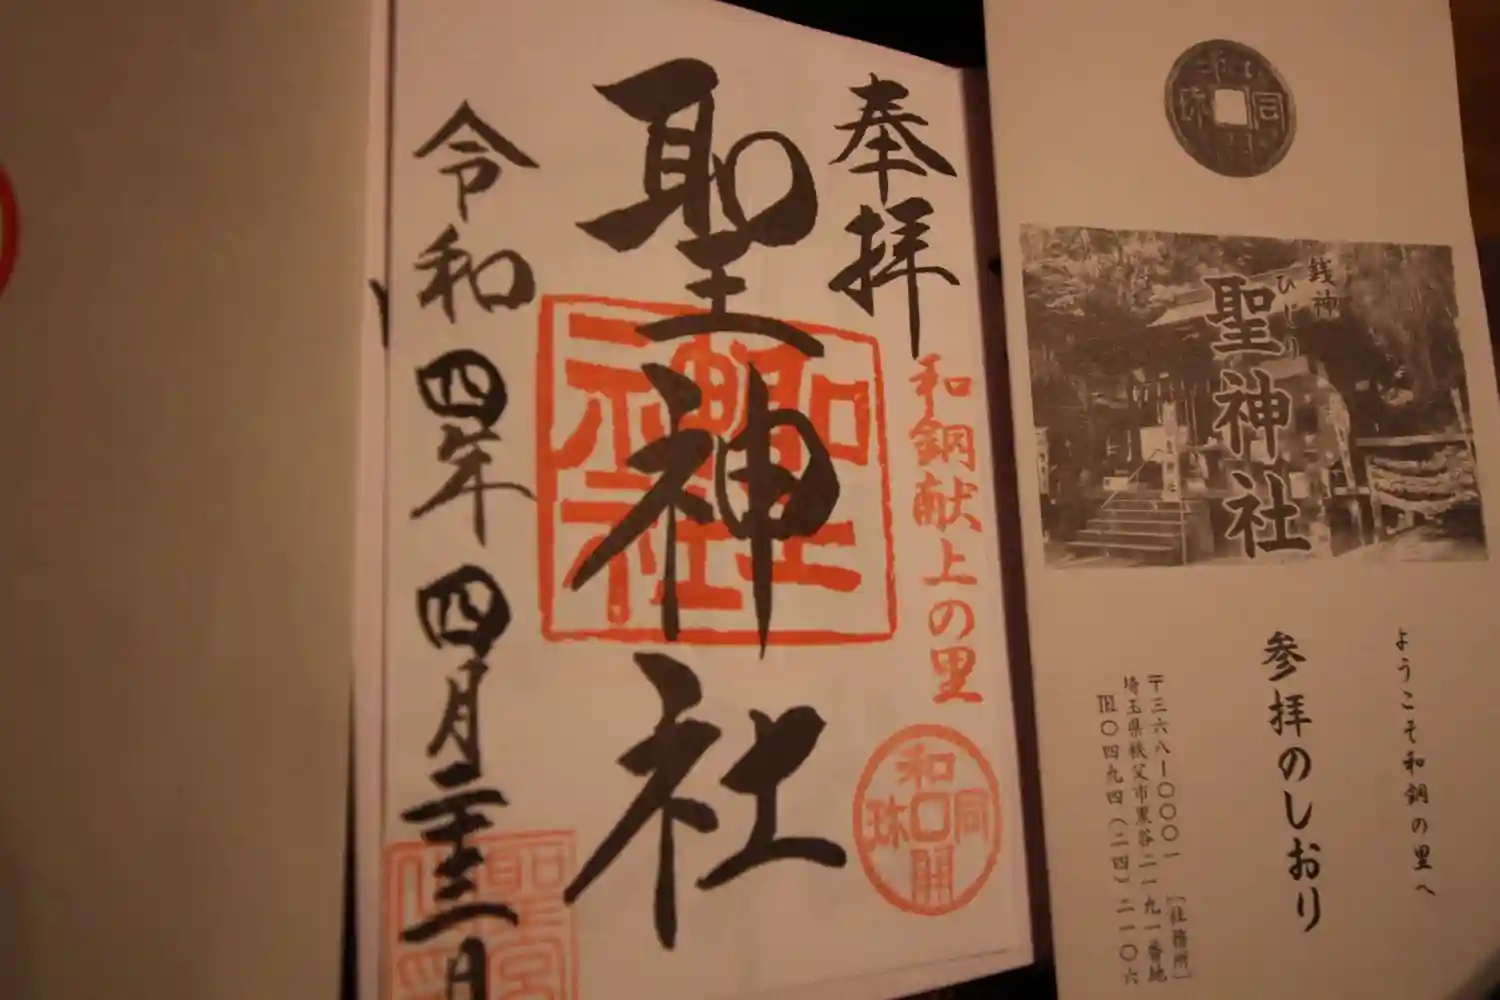 奉拝
和銅献上の里
和同開珎
聖神社
聖神社
令和四年四月二十三日
和同
銭神
ひじり
聖神社
ようこそ和銅の里へ
参拝のしおり
〒三六八ー〇〇〇一 [社務所]
埼玉県秩父市黒谷二一九一番地
TEL〇四九四(二四)二一〇六